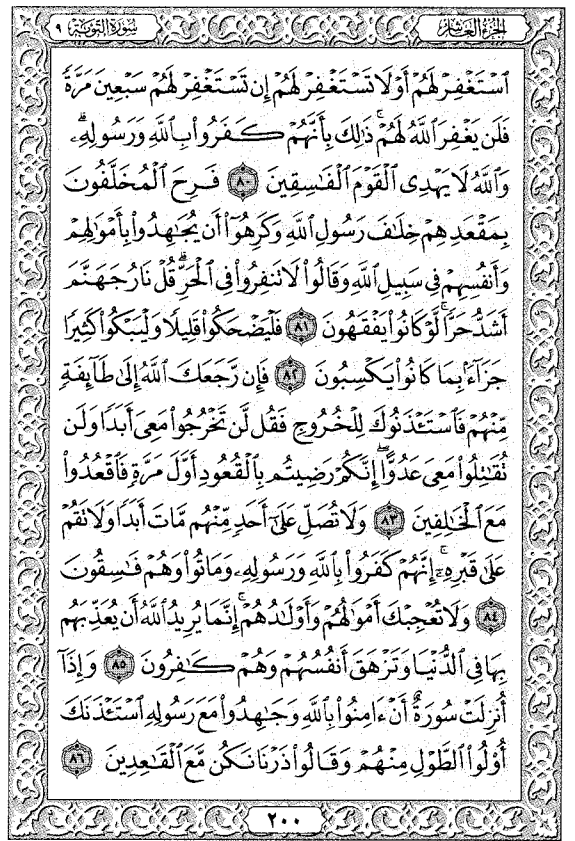 الجزء العاشر
سورة التوبة ٩
ٱسۡتَغۡفِرۡ لَهُمۡ أَوۡ لَا تَسۡتَغۡفِرۡ لَهُمۡ إِن تَسۡتَغۡفِرۡ لَهُمۡ سَبۡعِينَ مَرَّةٗ
فَلَن يَغۡفِرَ ٱللَّهُ لَهُمۡۚ ذَٰلِكَ بِأَنَّهُمۡ كَفَرُواْ بِٱللَّهِ وَرَسُولِهِۦۗ
وَٱللَّهُ لَا يَهۡدِي ٱلۡقَوۡمَ ٱلۡفَٰسِقِينَ ٨٠ فَرِحَ ٱلۡمُخَلَّفُونَ
بِمَقۡعَدِهِمۡ خِلَٰفَ رَسُولِ ٱللَّهِ وَكَرِهُوٓاْ أَن يُجَٰهِدُواْ بِأَمۡوَٰلِهِمۡ
وَأَنفُسِهِمۡ فِي سَبِيلِ ٱللَّهِ وَقَالُواْ لَا تَنفِرُواْ فِي ٱلۡحَرِّۗ قُلۡ نَارُ جَهَنَّمَ
أَشَدُّ حَرّٗاۚ لَّوۡ كَانُواْ يَفۡقَهُونَ ٨١ فَلۡيَضۡحَكُواْ قَلِيلٗا وَلۡيَبۡكُواْ كَثِيرٗا
جَزَآءَۢ بِمَا كَانُواْ يَكۡسِبُونَ ٨٢ فَإِن رَّجَعَكَ ٱللَّهُ إِلَىٰ طَآئِفَةٖ
مِّنۡهُمۡ فَٱسۡتَـٔۡذَنُوكَ لِلۡخُرُوجِ فَقُل لَّن تَخۡرُجُواْ مَعِيَ أَبَدٗا وَلَن
تُقَٰتِلُواْ مَعِيَ عَدُوًّاۖ إِنَّكُمۡ رَضِيتُم بِٱلۡقُعُودِ أَوَّلَ مَرَّةٖ فَٱقۡعُدُواْ
مَعَ ٱلۡخَٰلِفِينَ ٨٣ وَلَا تُصَلِّ عَلَىٰٓ أَحَدٖ مِّنۡهُم مَّاتَ أَبَدٗا وَلَا تَقُمۡ
عَلَىٰ قَبۡرِهِۦٓۖ إِنَّهُمۡ كَفَرُواْ بِٱللَّهِ وَرَسُولِهِۦ وَمَاتُواْ وَهُمۡ فَٰسِقُونَ
٨٤ وَلَا تُعۡجِبۡكَ أَمۡوَٰلُهُمۡ وَأَوۡلَٰدُهُمۡۚ إِنَّمَا يُرِيدُ ٱللَّهُ أَن يُعَذِّبَهُم
بِهَا فِي ٱلدُّنۡيَا وَتَزۡهَقَ أَنفُسُهُمۡ وَهُمۡ كَٰفِرُونَ ٨٥ وَإِذَآ
أُنزِلَتۡ سُورَةٌ أَنۡ ءَامِنُواْ بِٱللَّهِ وَجَٰهِدُواْ مَعَ رَسُولِهِ ٱسۡتَـٔۡذَنَكَ
أُوْلُواْ ٱلطَّوۡلِ مِنۡهُمۡ وَقَالُواْ ذَرۡنَا نَكُن مَّعَ ٱلۡقَٰعِدِينَ ٨٦
٢٠٠